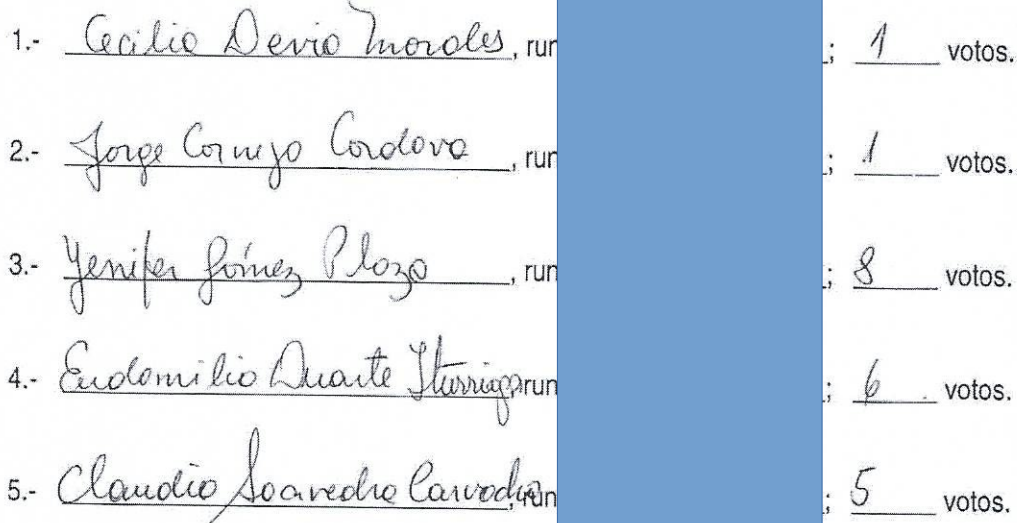 1.- Cecilia Devia Morales, run ; 1 votos.
2.- Jorge Cornejo Cordova, run ; 1 votos.
3.- Yenifer Gómez Plaza, run ; 8 votos.
4.- Eudomilio Duarte Iturriaga, run ; 6 votos.
5.- Claudio Saavedra, run ; 5 votos.